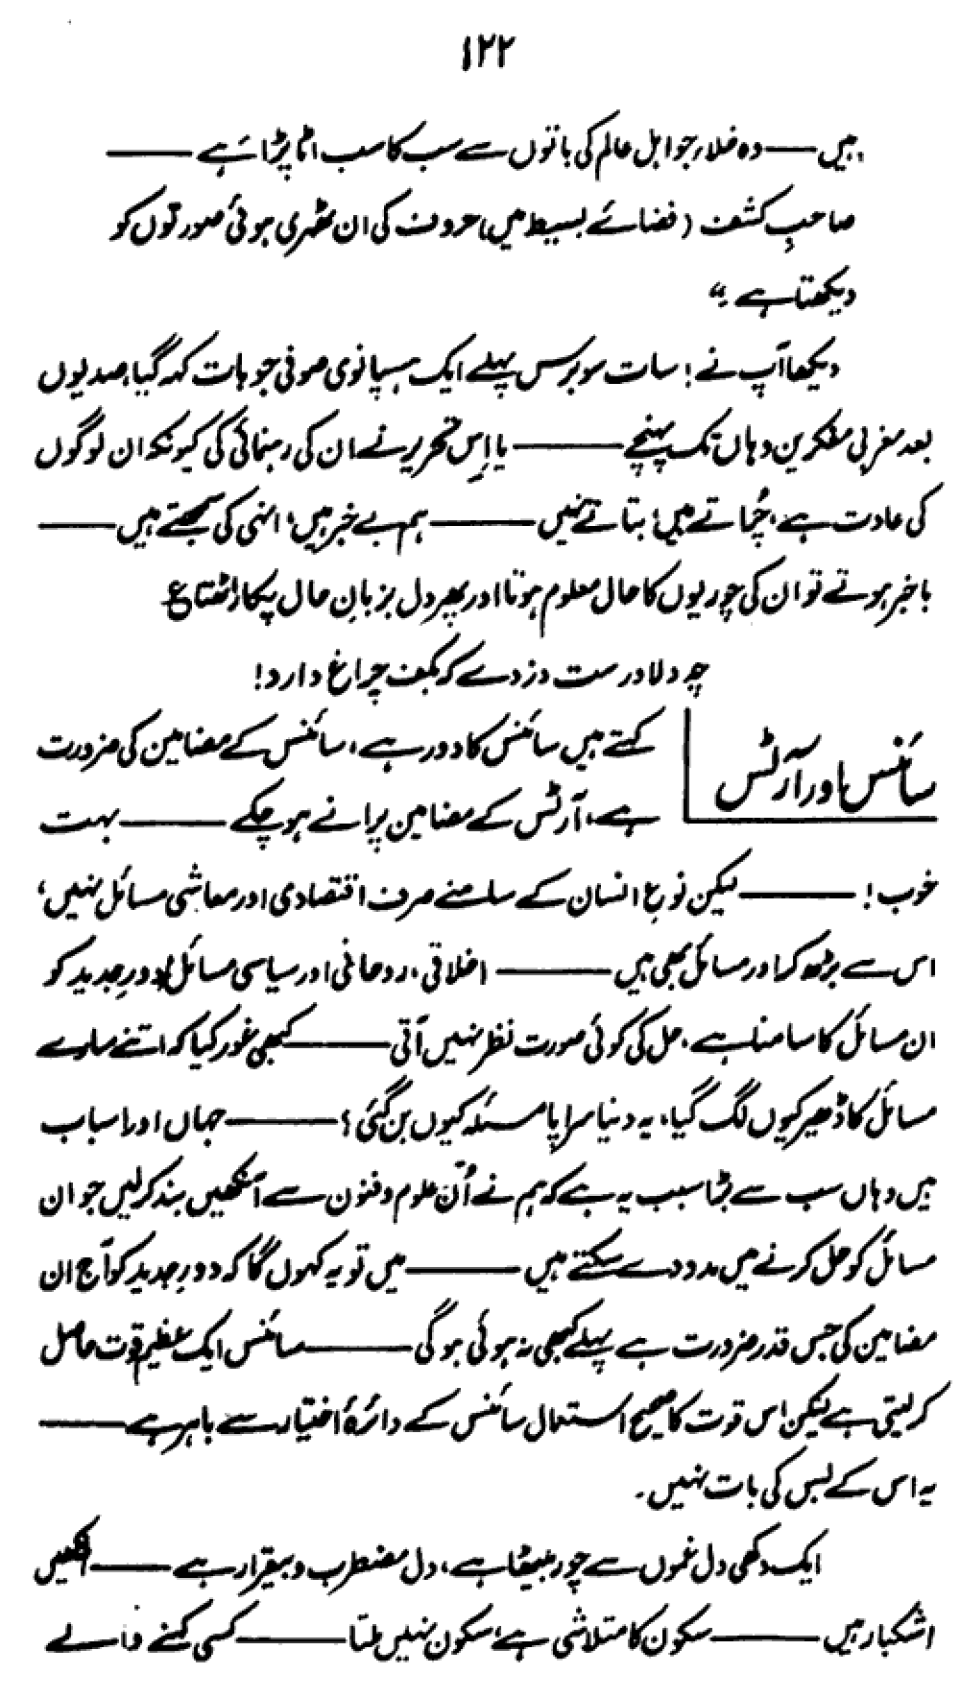 ۱۲۲
ہیں ــــــ وہ خلاء جو اہل عالم کی باتوں سے سب کا سب اٹا پڑا ہے ــــــ
صاحبِ کشف (فضائے بسیط میں) حروف کی ان ٹھہری ہوئی صورتوں کو
دیکھتا ہے ۔"
دیکھا آپ نے! سات سو برس پہلے ایک ہسپانوی صوفی جو بات کہہ گیا، صدیوں
بعد مغربی مفکرین وہاں تک پہنچے ــــــ یا اِس تحریر نے ان کی رہنمائی کی کیونکہ ان لوگوں
کی عادت ہے، چُراتے ہیں، بتاتے نہیں ــــــ ہم بے خبر ہیں، انہی کی سمجھتے ہیں ــــــ
باخبر ہوتے تو ان کی چوریوں کا حال معلوم ہوتا اور پھر دل بزبانِ حال پکار اٹھتا ع
چہ دلاورست دزدے کہ بکف چراغ دارد!
سائنس اور آرٹس
کہتے ہیں سائنس کا دور ہے، سائنس کے مضامین کی ضرورت
ہے، آرٹس کے مضامین پرانے ہو چکے ــــــ بہت
خوب! ــــــ لیکن نوعِ انسان کے سامنے صرف اقتصادی اور معاشی مسائل نہیں،
اس سے بڑھ کر اور مسائل بھی ہیں ــــــ اخلاقی، روحانی اور سیاسی مسائل، دورِ جدید کو
ان مسائل کا سامنا ہے، حل کی کوئی صورت نظر نہیں آتی ــــــ کبھی غور کیا کہ اتنے سارے
مسائل کا ڈھیر کیوں لگ گیا، یہ دنیا سراپا مسئلہ کیوں بن گئی؟ ــــــ جہاں اور اسباب
ہیں وہاں سب سے بڑا سبب یہ ہے کہ ہم نے اُن علوم و فنون سے آنکھیں بند کر لیں جو ان
مسائل کو حل کرنے میں مدد دے سکتے ہیں ــــــ میں تو یہ کہوں گا کہ دورِ جدید کو آج ان
مضامین کی جس قدر ضرورت ہے پہلے کبھی نہ ہوئی ہوگی ــــــ سائنس ایک عظیم قوت حاصل
کر لیتی ہے لیکن اِس قوت کا صحیح استعمال سائنس کے دائرۂ اختیار سے باہر ہے ــــــ
یہ اس کے بس کی بات نہیں۔
ایک دکھی دل غموں سے چور بیٹھا ہے، دل مضطرب و بیقرار ہے ــــــ آنکھیں
اشکبار ہیں ــــــ سکون کا متلاشی ہے، سکون نہیں ملتا ــــــ کسی کہنے والے